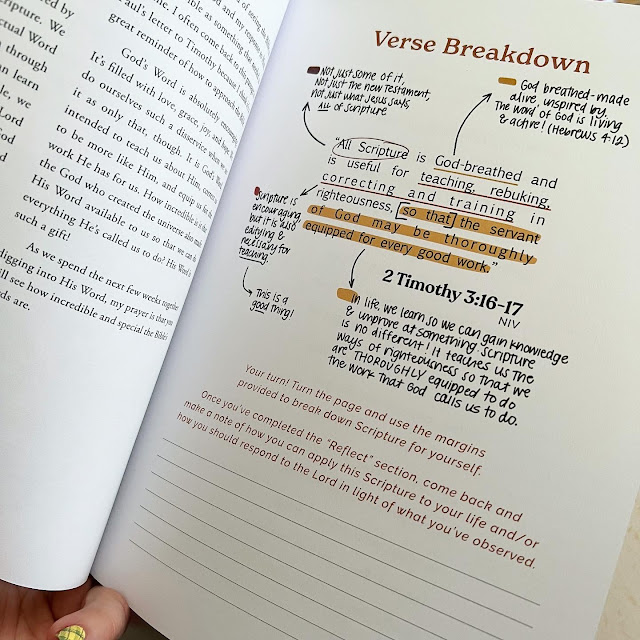 me. I often come back to this
aul's letter to Timothy because I
great reminder of how to approach the
God's Word is absolutely
It's filled with love, grace, joy, and
do ourselves such a disservice when we
it as only that, though. It is God's
intended to teach us about Him,
to be more like Him, and equip us for the
work He has for us. How incredible is it
the God who created the universe also made
His Word available to us so that we can do
everything He's called us to do? His Word is
such a gift!
As we spend the next few weeks together
digging into His Word, my prayer is that you
ll see how incredible and special the Bible
ds are.
ed by
ripture. We
ctual Word
through
an learn
le, we
Lord
God
d
Verse Breakdown
Not just some of it,
Not just the new testament,
not just what Jesus says
All of scripture
God breathed-made
alive, inspired by.
The word of God is living
& active! (Hebrews 4:12)
"All Scripture is God-breathed and
is useful for teaching, rebuking,
correcting and training in
righteousness, [so that] the servant
of God may be thoroughly
equipped for every good work."
2 Timothy 3:16-17
NIV
Scripture is
encouraging
but it is also
edifying &
necessary for
teaching
This is a
good thing!
In life, we learn so we can gain knowledge
& improve at something. Scripture
is no different! It teaches us the
ways of righteousness so that we
are THOROUGHLY equipped to do
the work that God calls us to do.
Your turn! Turn the page and use the margins
provided to break down Scripture for yourself.
Once you've completed the "Reflect" section, come back and
make a note of how you can apply this Scripture to your life and/or
how you should respond to the Lord in light of what you've observed.